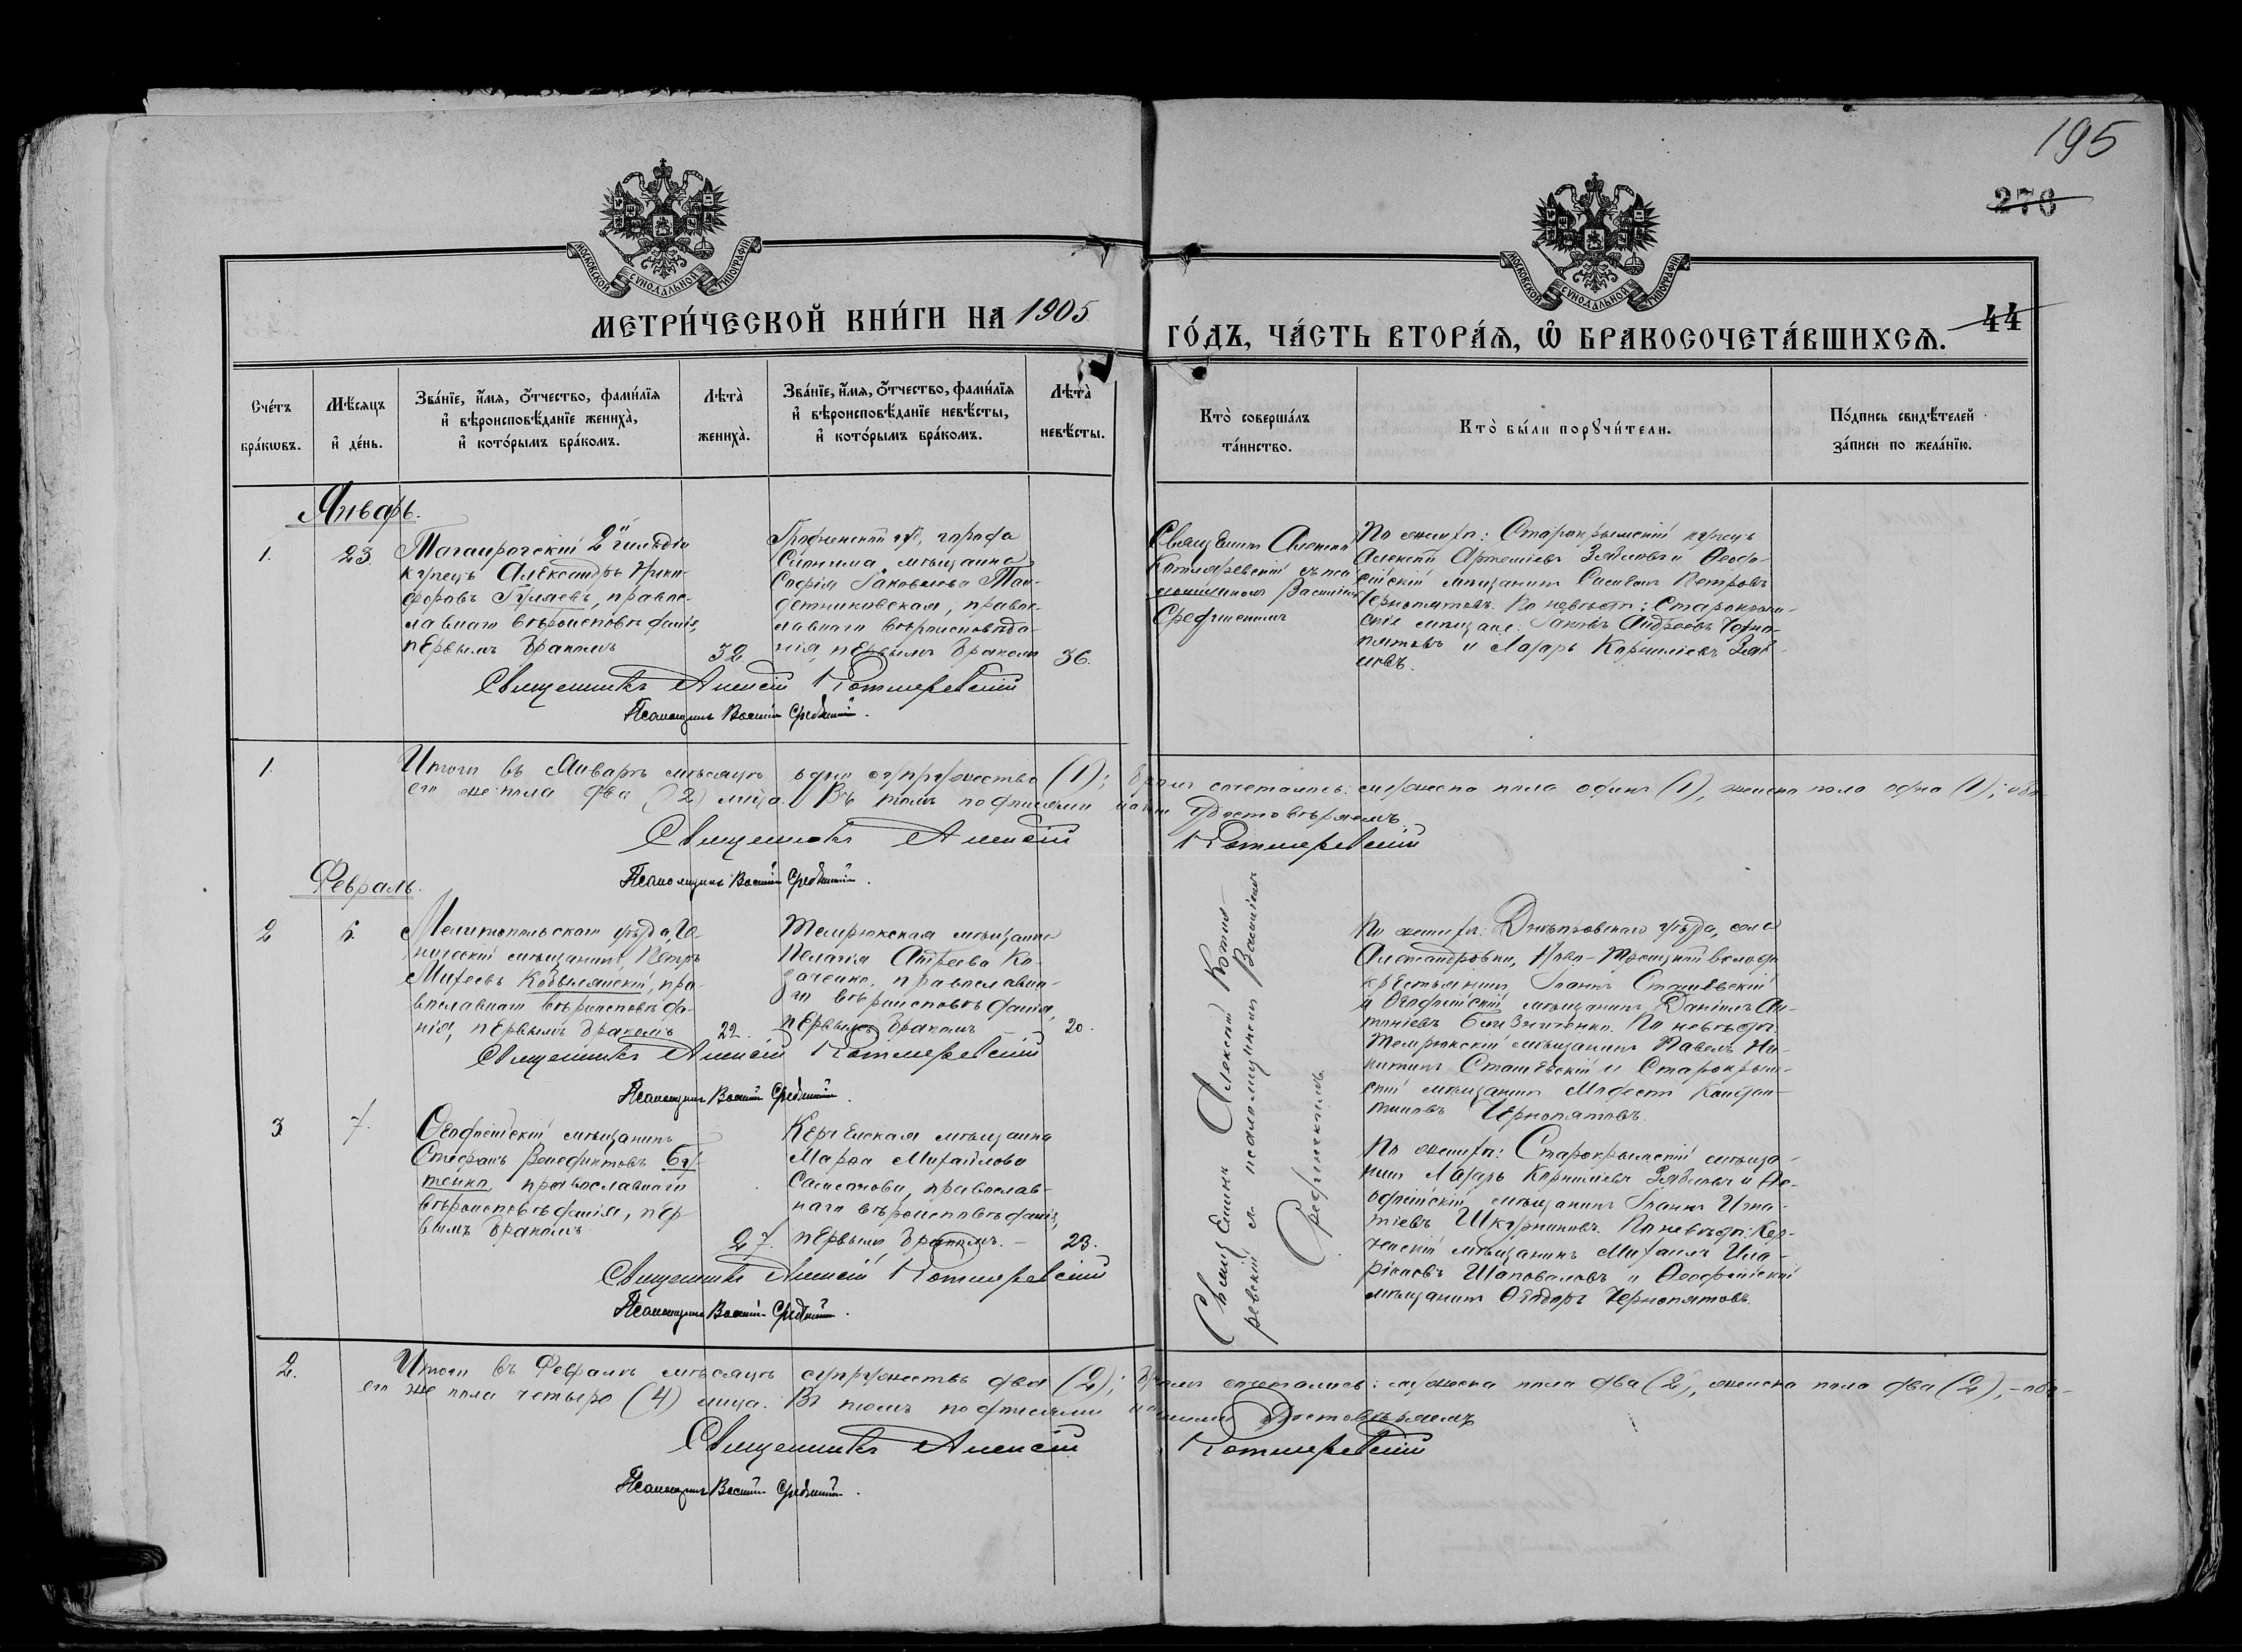 195
276
МОСКОВСКОЙ СѴНОДАЛЬНОЙ ТИПОГРАФІИ
МОСКОВСКОЙ СѴНОДАЛЬНОЙ ТИПОГРАФІИ
МЕТРИ́ЧЕСКОЙ КНИ́ГИ НА 1905
ГО́ДЪ, ЧА́СТЬ ВТОРА́Ѧ, Ѽ БРАКОСОЧЕТА́ВШИХСѦ.
44
Сче́тъ
бра́кѡвъ.
Мѣ́сяцъ
и҆ де́нь.
Зва́нїе, и҆́мя, ѻ҆́тчество, фами́лїя
и҆ вѣроисповѣ́данїе жениха̀,
и҆ кото́рымъ бра́комъ.
Лѣта̀
жениха̀.
Зва́нїе, и҆́мя, ѻ҆́тчество, фами́лїя
и҆ вѣроисповѣ́данїе невѣ́сты,
и҆ кото́рымъ бра́комъ.
Лѣта̀
невѣ́сты.
Кто̀ соверша́лъ
та́инство.
Кто̀ бы́ли порꙋчи́тели.
По́дпись свидѣ́телей
за́писи по жела́нїю.
Январь.
1.
23.
Таганрогскій 2й гильдіи
купецъ Александръ Ники-
форовъ Гуляевъ, правос-
лавнаго вѣроисповѣданія,
первымъ бракомъ
32
Гродненской губ. города
Слонима мѣщанка
Софія Іаковлева
правос-
лавнаго вѣроисповѣда-
нія, первымъ бракомъ
36.
Священникъ Алексій
Котляревскій съ пса-
ломщикомъ Василіемъ
По женихѣ: Старокрымскій купецъ
Алексій Артеміевъ Зябловъ и Ѳеодо-
сійскій мѣщанинъ Петровъ
Чернопятовъ. По невѣстѣ: Старокрым-
скіе мѣщане: Іаковъ Андреевъ Черно-
пятовъ и Лазарь Корниліевъ Зяб-
ловъ.
Священникъ Алексій Котляревскій
Псаломщикъ Василій
1.
Итого въ Январѣ мѣсяцѣ одно супружество (1); бракомъ сочетались: мужеска пола одинъ (1), женска пола одна (1); обо-
его же пола два (2) лица. Въ томъ подписями нашими удостовѣряемъ.
Священникъ Алексій Котляревскій
Псаломщикъ Василій
Февраль.
2
6.
Мелитопольскаго уѣзда, Ге-
ническій мѣщанинъ, Петръ
Михеевъ Кобылянскій, пра-
вославнаго вѣроисповѣда-
нія, первымъ бракомъ
22.
Темрюкская мѣщанка
Пелагія Андреева Ко-
заченко, православна-
го вѣроисповѣданія,
первымъ бракомъ
20.
Священникъ Алексій Котля-
ревскій съ псаломщикомъ Василіемъ
По женихѣ: Днѣпровскаго уѣзда, села
Александровки, Ново-Троицкой волости
крестьянинъ Іоаннъ Сташевскій
и Ѳеодосійскій мѣщанинъ Даніилъ Ан-
тоніевъ По невѣстѣ:
Темрюкскій мѣщанинъ Павелъ Ни-
китинъ Сташевскій и Старокрым-
скій мѣщанинъ Модестъ Констан-
тиновъ Чернопятовъ.
Священникъ Алексій Котляревскій
Псаломщикъ Василій
3
7.
Ѳеодосійскій мѣщанинъ
Стефанъ Венедиктовъ Бу-
тенко, православнаго
вѣроисповѣданія, пер-
вымъ бракомъ
27.
Керченская мѣщанка
Марѳа Михайлова
Самсонова, православ-
наго вѣроисповѣданія,
первымъ бракомъ. –
23.
По женихѣ: Старокрымскій мѣща-
нинъ Лазарь Корниліевъ Зябловъ и Ѳе-
одосійскій мѣщанинъ Іоаннъ Игна-
тіевъ Шкурниковъ. По невѣстѣ: Кер-
ченскій мѣщанинъ Михаилъ Ила-
ріоновъ Шаповаловъ и Ѳеодосійскій
мѣщанинъ Ѳеодоръ Чернопятовъ.
Священникъ Алексій Котляревскій
Псаломщикъ Василій
2.
Итого въ Февралѣ мѣсяцѣ супружествъ два (2); бракомъ сочетались: мужеска пола два (2), женска пола два (2), – обо-
его же пола четыре (4) лица. Въ томъ подписями нашими удостовѣряемъ
Священникъ Алексій Котляревскій
Псаломщикъ Василій